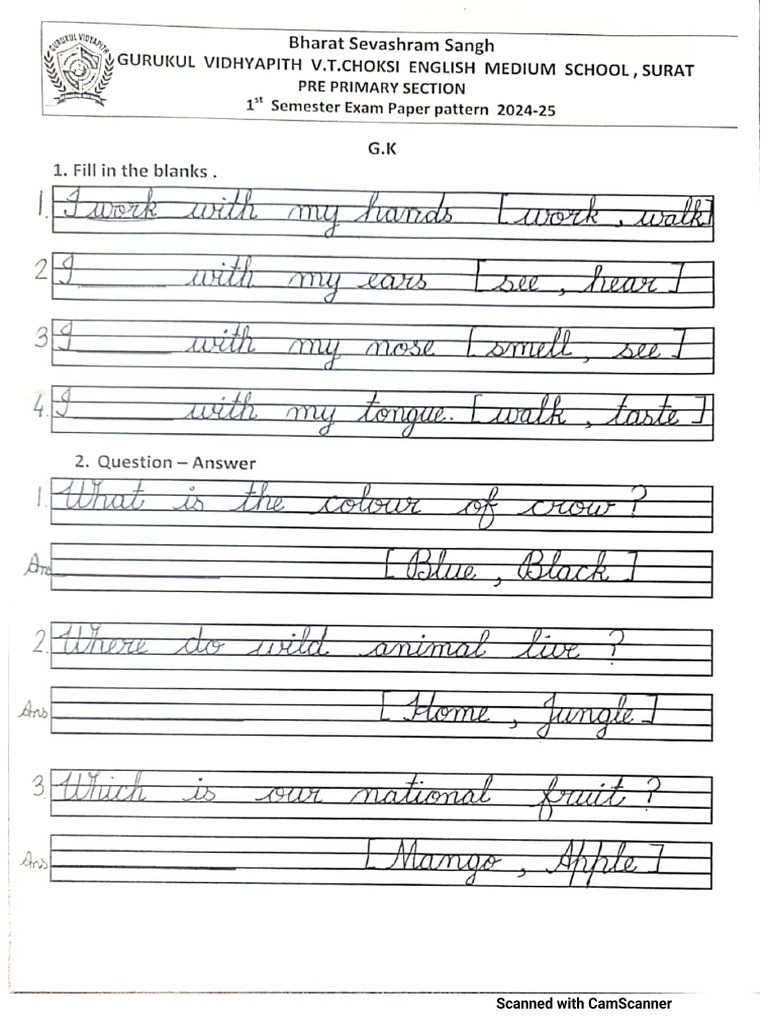 GURUKUL VIDYAPITH
Bharat Sevashram Sangh
GURUKUL VIDHYAPITH V.T.CHOKSI ENGLISH MEDIUM SCHOOL , SURAT
PRE PRIMARY SECTION
1st Semester Exam Paper pattern 2024-25
G.K
1. Fill in the blanks .
1. I work with my hands [work , walk]
2 I______ with my ears [see , hear]
3 I______ with my nose [smell, see]
4. I______ with my tongue. [walk , taste]
2. Question – Answer
1. What is the colour of crow?
Ans____________ [Blue , Black]
2. Where do wild animal live ?
Ans____________ [Home , Jungle]
3. Which is our national fruit ?
Ans____________ [Mango , Apple]
Scanned with CamScanner